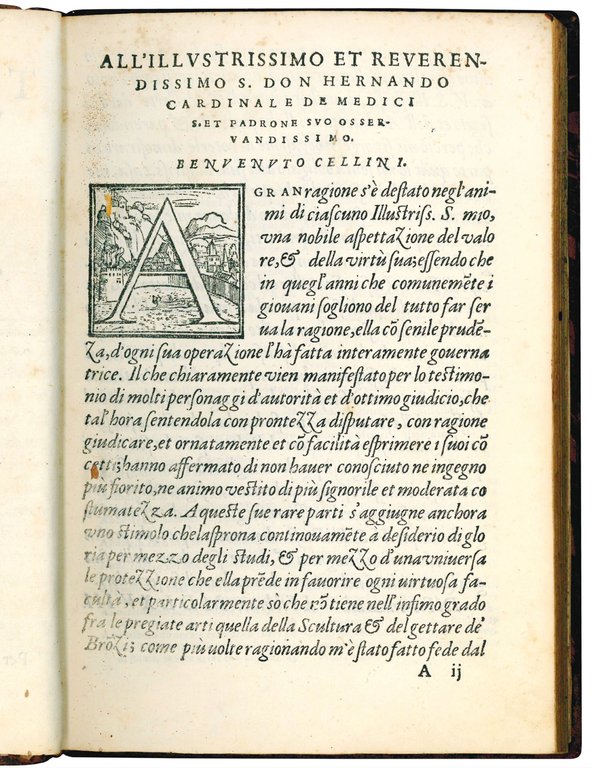 ALL'ILLVSTRISSIMO ET REVEREN-
DISSIMO S. DON HERNANDO
CARDINALE DE MEDICI
S. ET PADRONE SVO OSSER-
VANDISSIMO.
BENVENVTO CELLINI.
A GRAN ragione s'è destato negl'ani
mi di ciascuno Illustriss. S. mio,
vna nobile aspettaZione del valo
re,& della virtù sua;essendo che
in quegl'anni che comunemẽte i
giouani sogliono del tutto far ser
ua la ragione, ella cõ senile prudẽ-
Za, d'ogni sua operaZione l'hà fatta interamente gouerna
trice. Il che chiaramente vien manifestato per lo testimo-
nio di molti personaggi d'autorità et d'ottimo giudicio, che
tal'hora sentendola con prontezza disputare, con ragione
giudicare, et ornatamente et cõ facilità esprimere i suoi cõ
cetti;hanno affermato di non hauer conosciuto ne ingegno
più fiorito, ne animo vestito di più signorile et moderata co
stumateZza. A queste sue rare parti s'aggiugne anchora
vno stimolo che lasprona continouamẽte à desiderio di glo
ria per mezzo degli studi, & per meZzo d'una vniuersa
le proteZZione che ella prẽde in fauorire ogni virtuosa fa-
cultà, et particolarmente so che nõ tiene nell'infimo grado
fra le pregiate arti quella della Scultura & del gettare de'
BrõZi; come più uolte ragionando m'è stato fatto fede dal
A ij